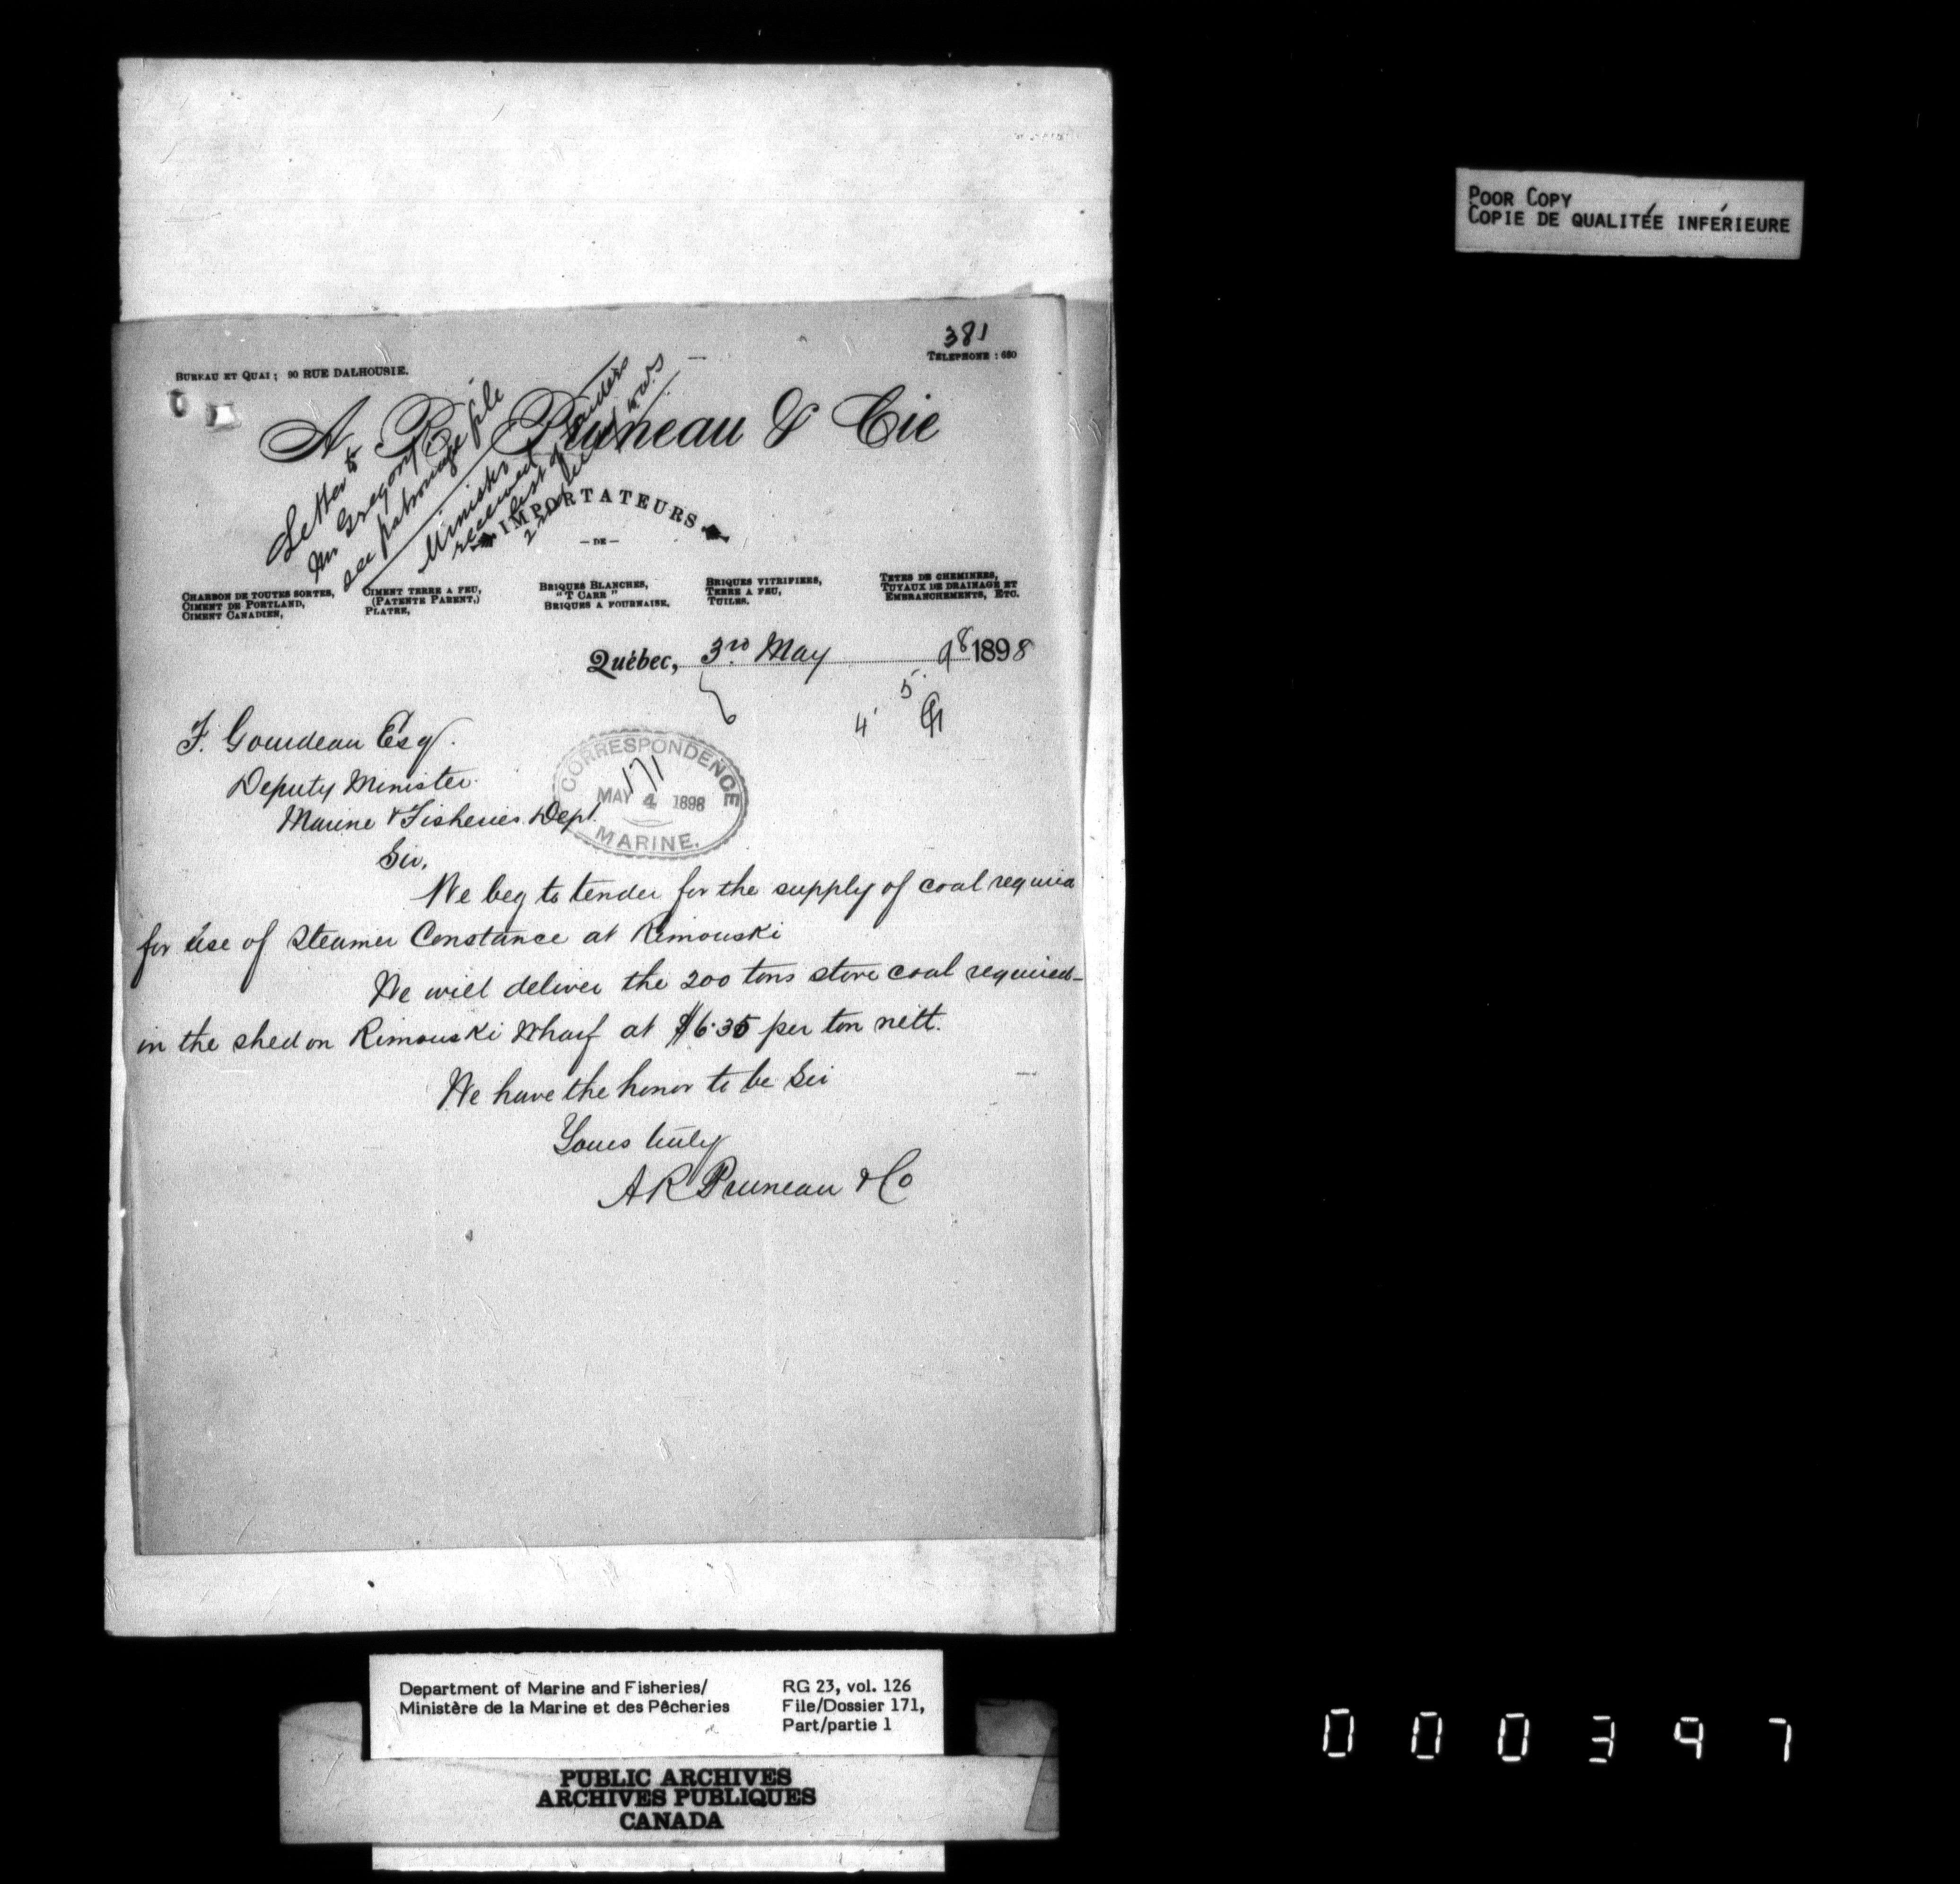 POOR COPY
COPIE DE QUALITÉE INFÉRIEURE
381
TELEPHONE : 680
BUREAU ET QUAI ; 90 RUE DALHOUSIE.
A. R. Pruneau & Cie
Letter to
Mr Gregory
see patronage file
Minister
received
list of tenders
IMPORTATEURS
— DE —
CHARBON DE TOUTES SORTES,
CIMENT DE PORTLAND,
CIMENT CANADIEN,
CIMENT TERRE A FEU,
(PATENTE PARENT,)
PLATRE,
BRIQUES BLANCHES,
"T CARR"
BRIQUES A FOURNAISE,
BRIQUES VITRIFIEES,
TERRE A FEU,
TUILES,
TETES DE CHEMINEES,
TUYAUX DE DRAINAGE ET
EMBRANCHEMENTS, ETC.
Québec, 3rd May 98 1898
4 5.
F. Gourdeau Esq.
Deputy Minister
Marine & Fisheries Dept.
CORRESPONDENCE
171
MAY 4 1898
MARINE.
Sir,
We beg to tender for the supply of coal required
for use of Steamer Constance at Rimouski
We will deliver the 200 tons stove coal required
in the shed on Rimouski Wharf at $6.35 per ton nett.
We have the honor to be Sir
Yours truly
A R Pruneau & Co
Department of Marine and Fisheries/
Ministère de la Marine et des Pêcheries
RG 23, vol. 126
File/Dossier 171,
Part/partie 1
PUBLIC ARCHIVES
ARCHIVES PUBLIQUES
CANADA
000397